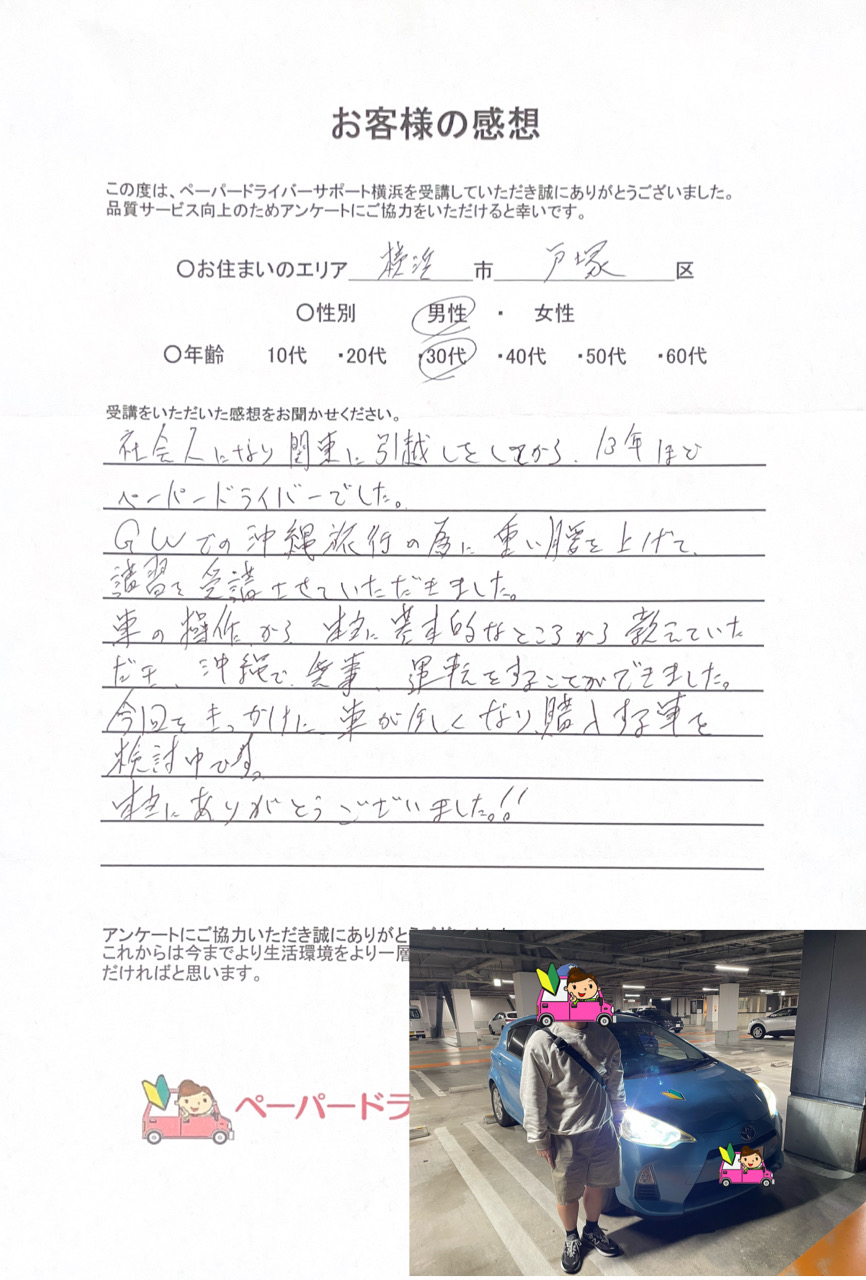 お客様の感想
この度は、ペーパードライバーサポート横浜を受講していただき誠にありがとうございました。
品質サービス向上のためアンケートにご協力をいただけると幸いです。
〇お住まいのエリア 横浜 市 戸塚 区
〇性別 男性 ・ 女性
〇年齢 10代 ・20代 ・30代 ・40代 ・50代 ・60代
受講をいただいた感想をお聞かせください。
社会人になり関東に引越しをしてから、13年ほど
ペーパードライバーでした。
GWでの沖縄旅行の為に重い腰を上げて、
講習を受講させていただきました。
車の操作から本当に基本的なところから教えていた
だき、沖縄で、無事、運転をすることができました。
今回をきっかけに、車が欲しくなり、購入する車を
検討中です。
本当にありがとうございました。!!
アンケートにご協力いただき誠にありがと
これからは今までより生活環境をより一層
だければと思います。
ペーパードラ